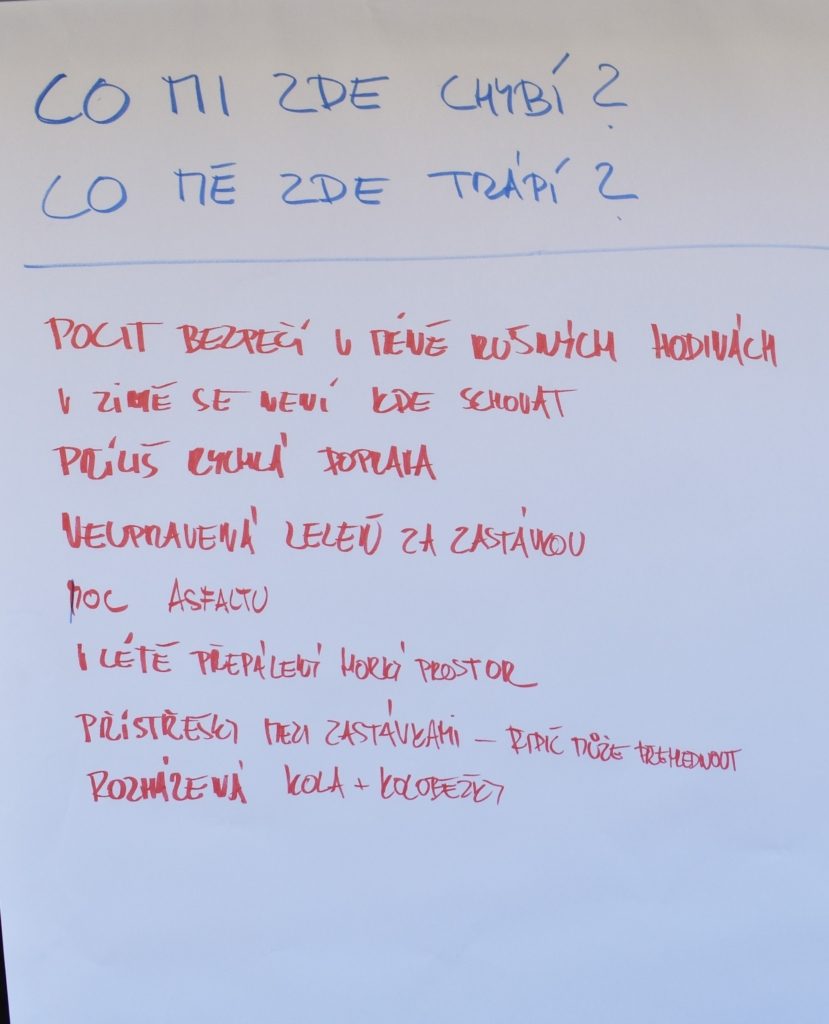 CO MI ZDE CHYBÍ?
CO MĚ ZDE TRÁPÍ?
POCIT BEZPEČÍ V MÉNĚ RUŠNÝCH HODINÁCH
V ZIMĚ SE NENÍ KDE SCHOVAT
PŘÍLIŠ RYCHLÁ DOPRAVA
NEUPRAVENÁ ZELEŇ ZA ZASTÁVKOU
MOC ASFALTU
V LÉTĚ PŘEPÁLENÍ HORKÝ PROSTOR
PŘÍSTŘEŠKY MEZI ZASTÁVKAMI – ŘIDIČ MŮŽE PŘEHLEDNOUT
ROZHÁZENÁ KOLA + KOLOBĚŽKY